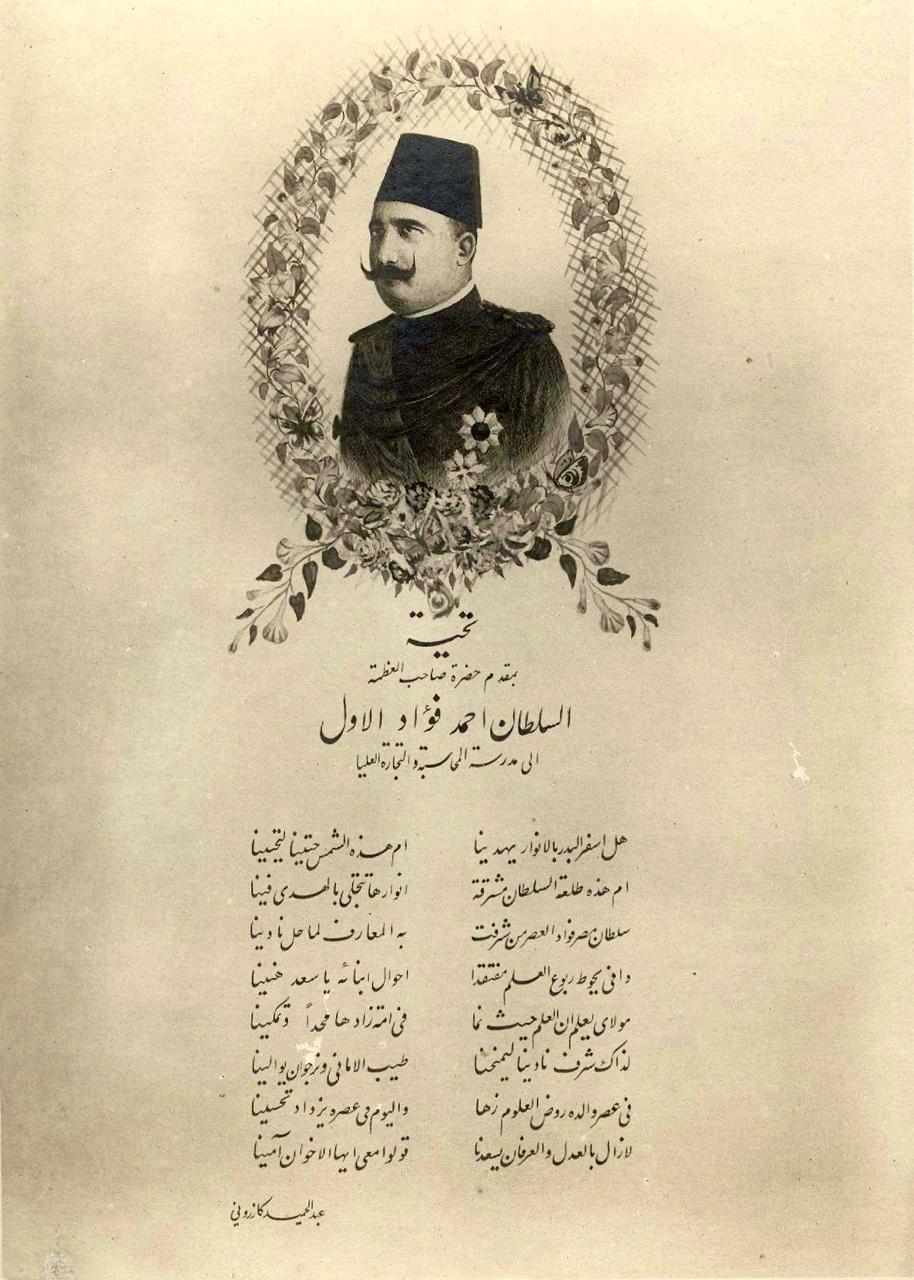 تحية
بمقدم حضرة صاحب العظمة
السلطان احمد فؤاد الاول
الى مدرسة المحاسبة والتجارة العليا
هل اسفر البدر بالانوار يهدينا ام هذه الشمس حيتينا لتحيينا
ام هذه طلعة السلطان مشرقة انوارها تتجلى بالهدى فينا
سلطان مصر فواد العصر من شرفت به المعارف لما حل نادينا
وافى يحوط ربوع العلم مفتقدا احوال ابنائه يا سعد هنينا
مولاى يعلم ان العلم حيث نما فى امة زادها مجداً وتمكينا
لذاك شرف نادينا ليمنحنا طيب الامانى ونرجو ان يوالينا
فى عصر والده روض العلوم زها واليوم فى عصره يزداد تحسينا
لازال بالعدل والعرفان يسعدنا قولوا معى ايها الاخوان آمينا
عبدالحميد كازرونى